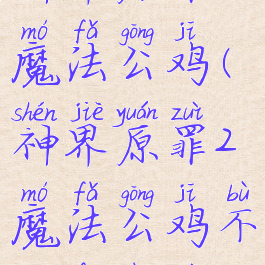 mó fǎ gōng jī
魔法公鸡(
shén jiè yuán zuì
神界原罪2
mó fǎ gōng jī bù
魔法公鸡不